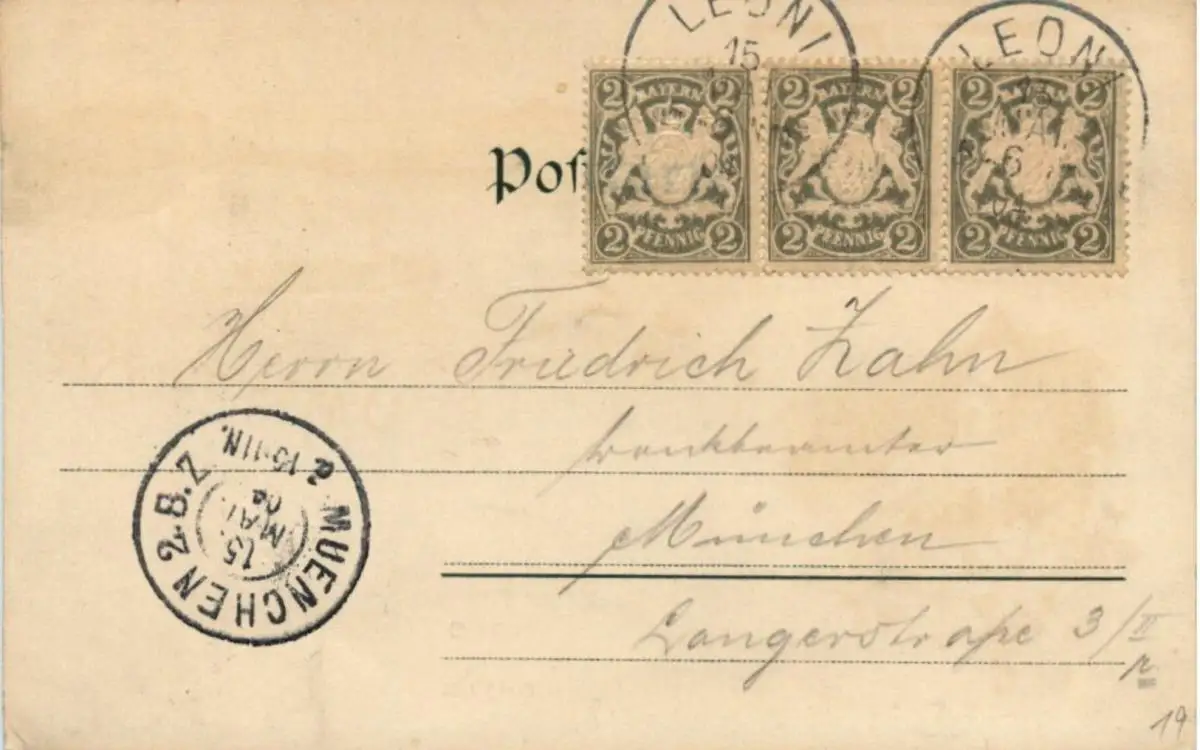 LEONI LEONI
15 15
MAI MAI
5-6
04 04
2 2 2 2 2 2
BAYERN BAYERN BAYERN
Pos
2 2 2 2 2 2
PFENNIG PFENNIG PFENNIG
Herrn Friedrich Zahn
bankbeamter
München
Langerstraße 3/II
r
MUENCHEN 2.B.Z
15.
MAI.
04
19